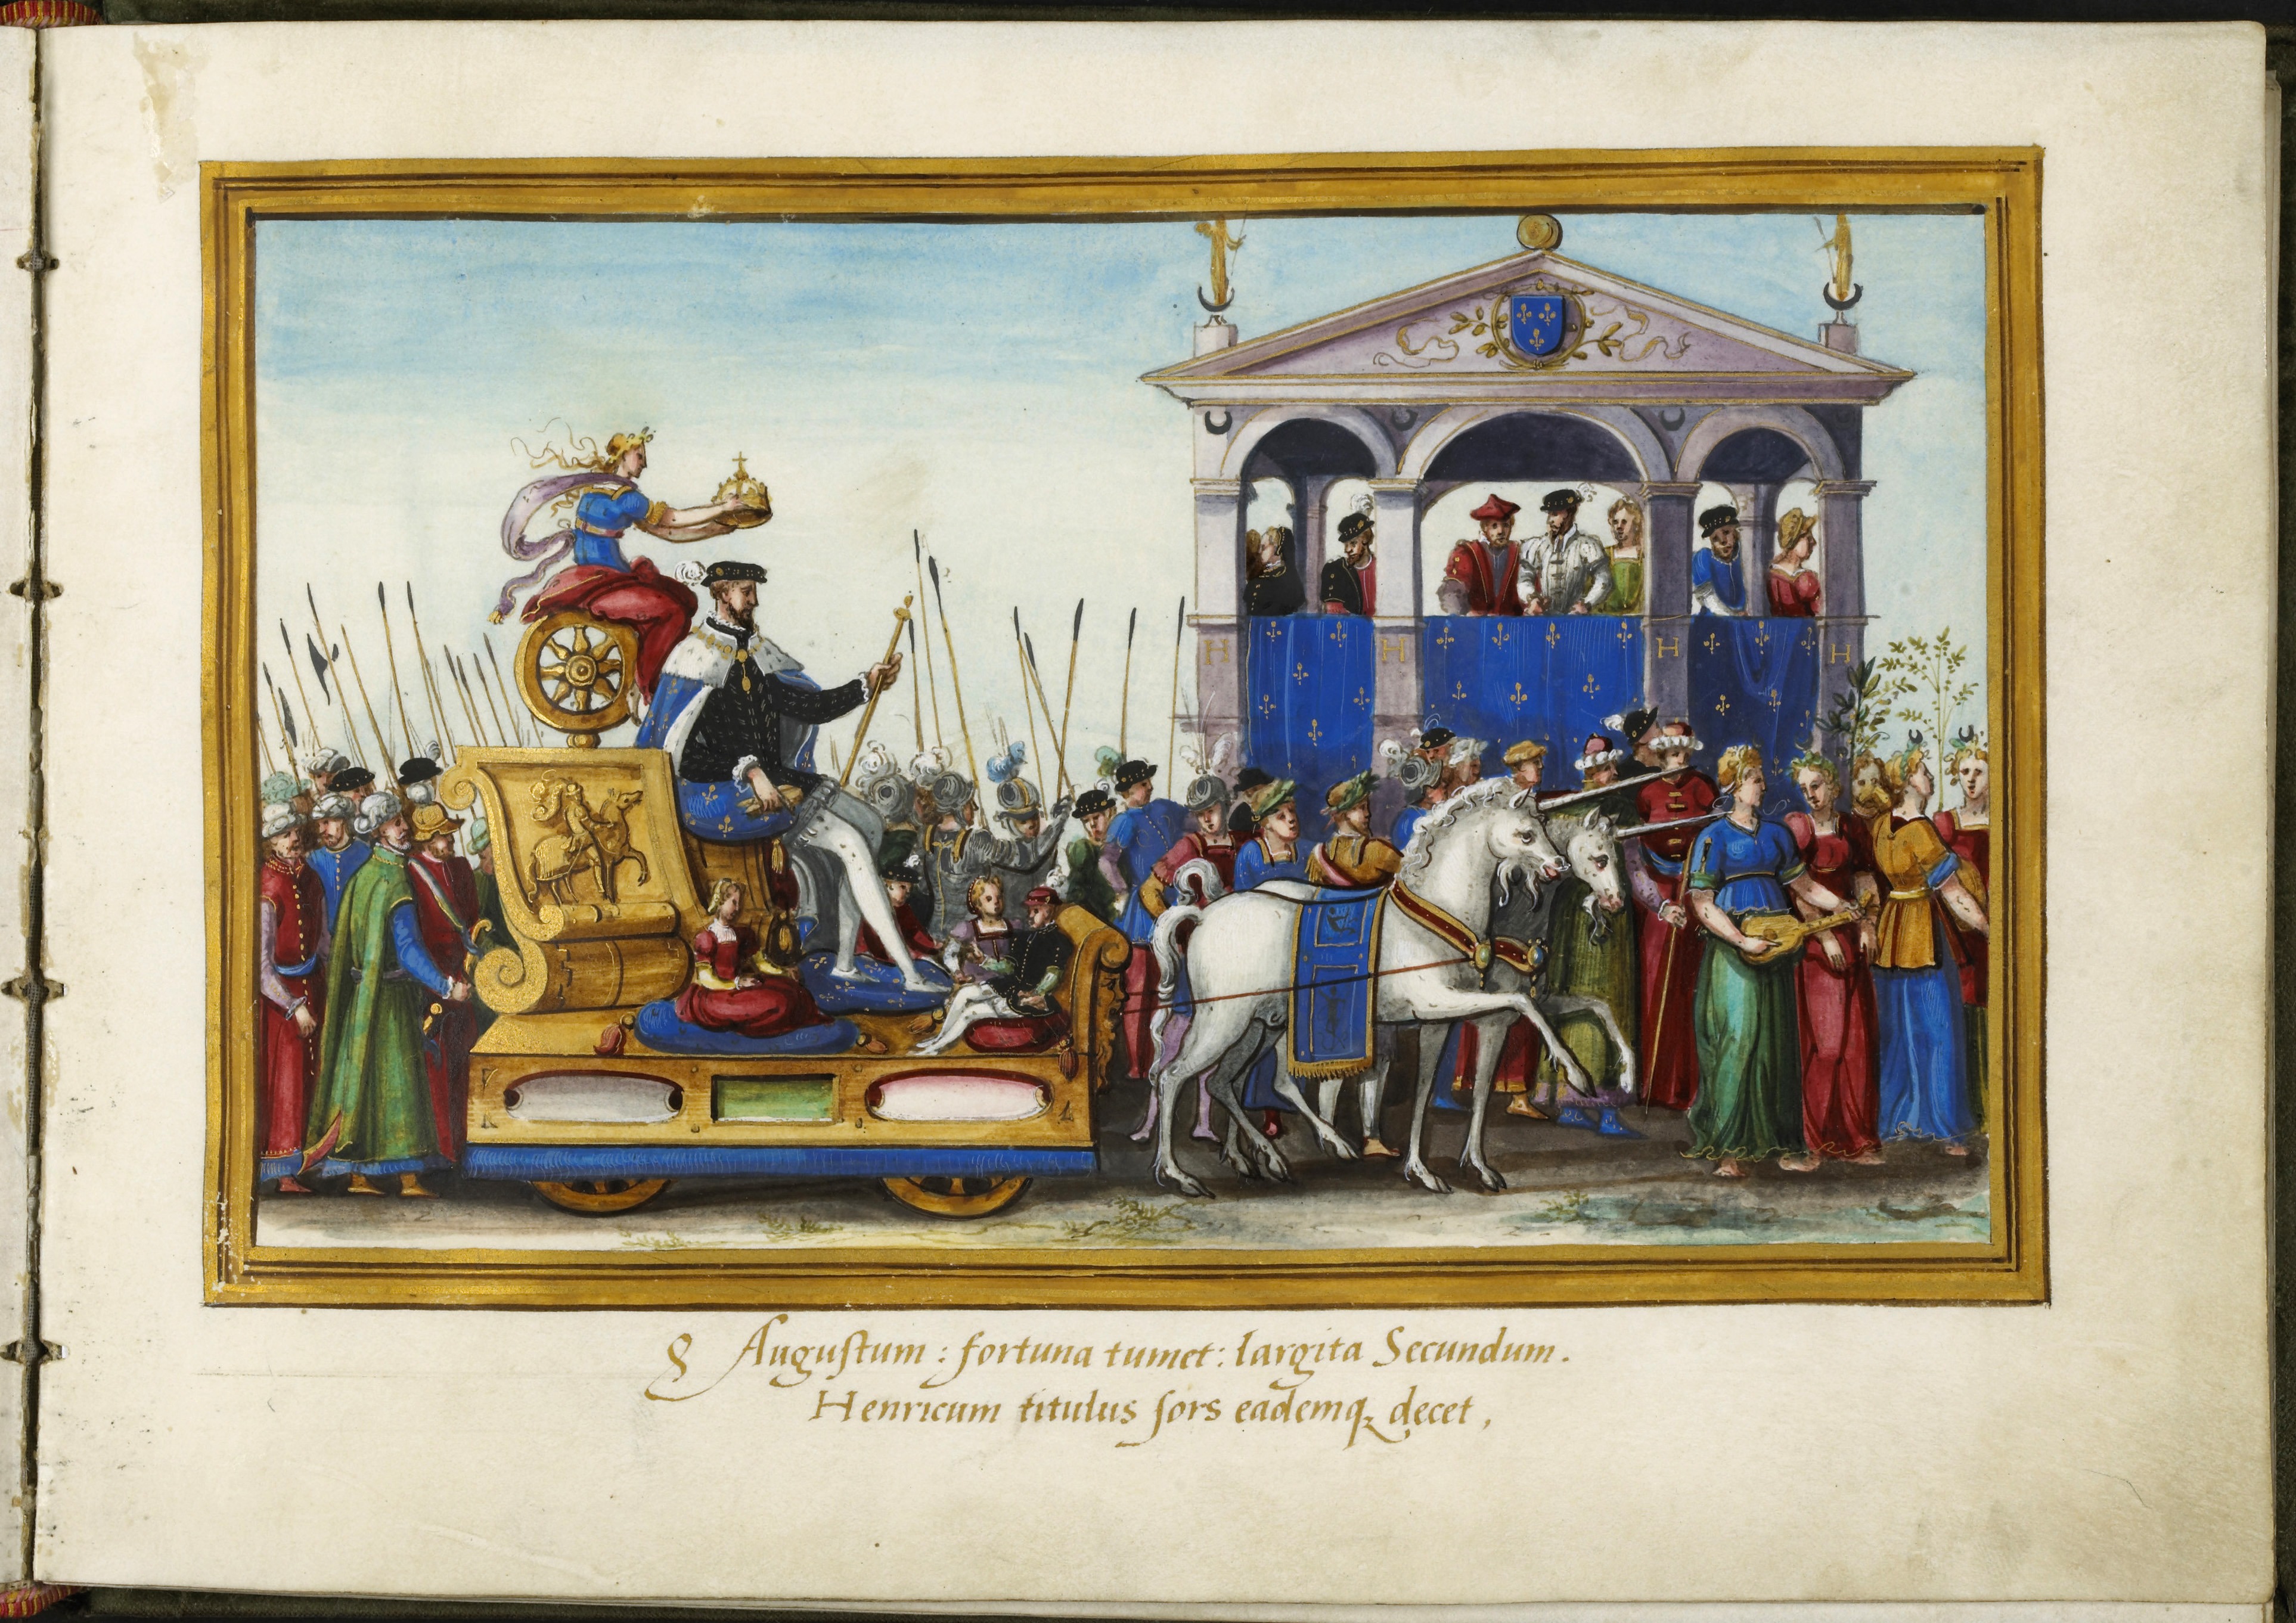 H H H H
Augustum : fortuna tumet : largita Secundum.
Henricum titulus sors eademq decet,